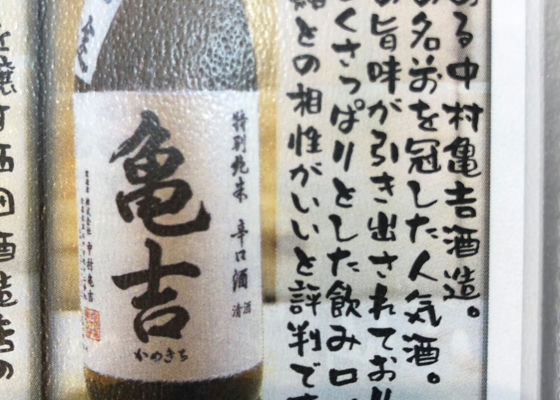 る中村亀吉酒造。
名前を冠した人気酒。
旨味が引き出されており
くさっぱりとした飲み口
との相性がいいと評判で
特別純米 辛口酒
清酒
亀吉
かめきち
株式会社 中村亀吉
す西田酒造店の